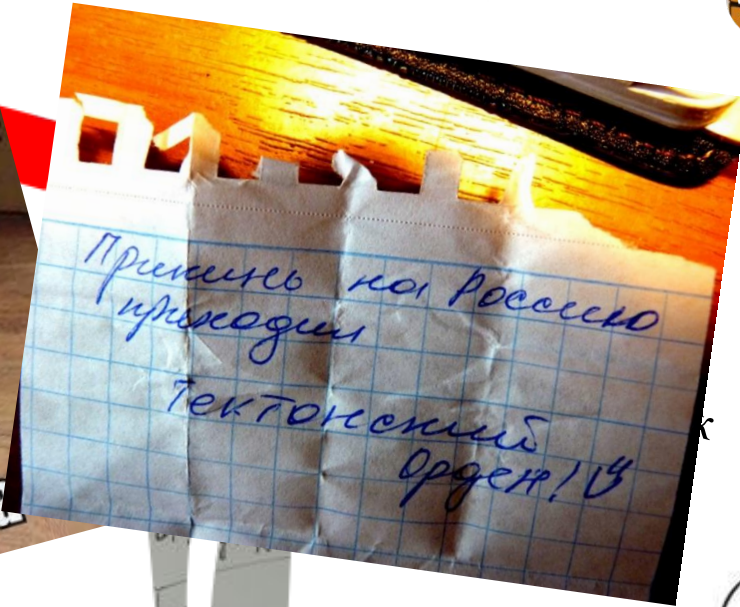 Прикинь на Россию
приходил
Тектонский
Орден!
к